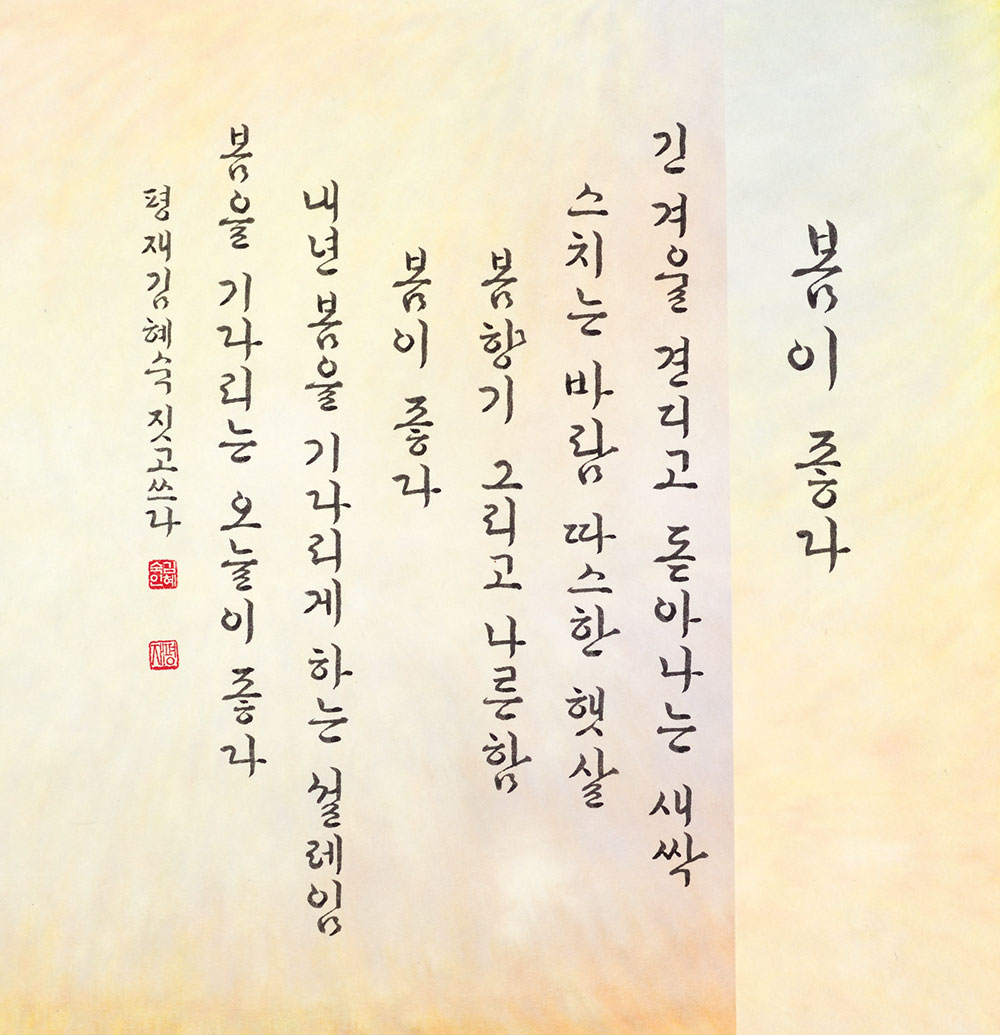 봄이 좋다
긴 겨울 견디고 돋아나는 새싹
스치는 바람 따스한 햇살
봄향기 그리고 나른함
봄이 좋다
내년 봄을 기다리게 하는 설레임
봄을 기다리는 오늘이 좋다
평재 김혜숙 짓고 쓰다